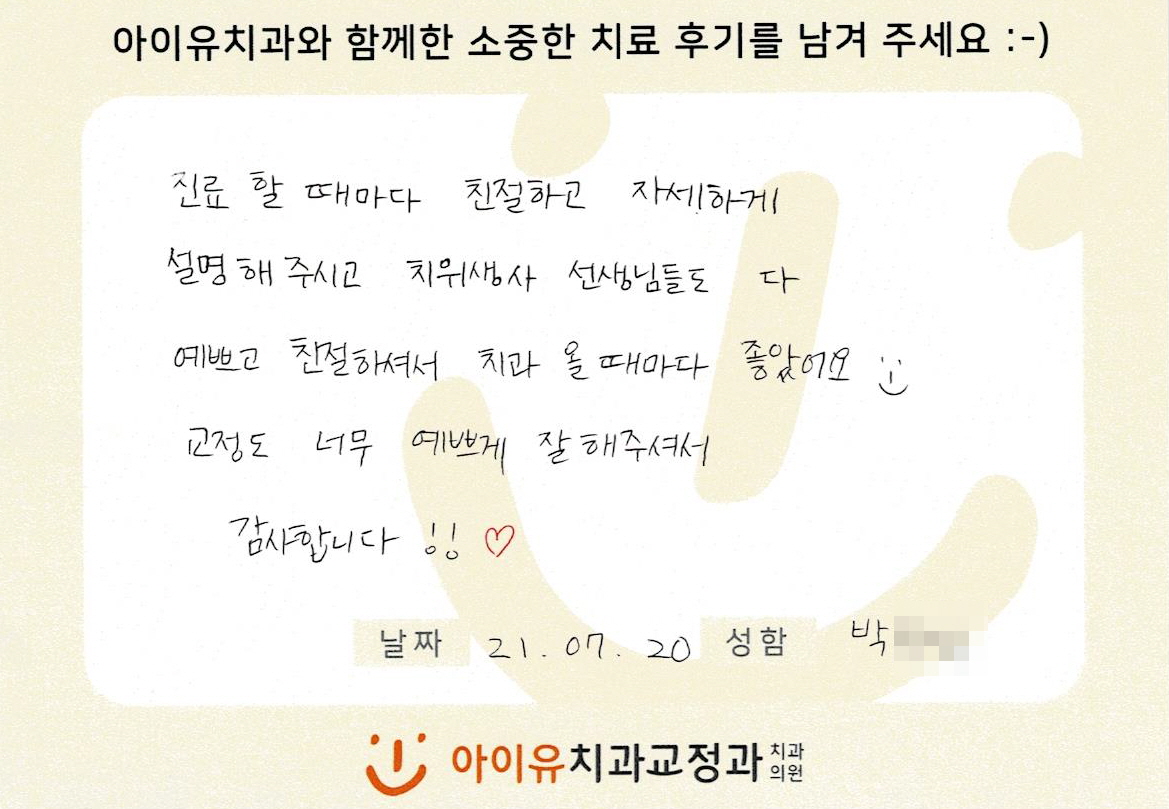 아이유치과와 함께한 소중한 치료 후기를 남겨 주세요 :-)
진료 할 때마다 친절하고 자세하게
설명해 주시고 치위생사 선생님들도 다
예쁘고 친절하셔서 치과 올 때마다 좋았어요
교정도 너무 예쁘게 잘 해주셔서
감사합니다 !! ♡
날짜 21.07.20 성함 박
아이유치과교정과 치과의원